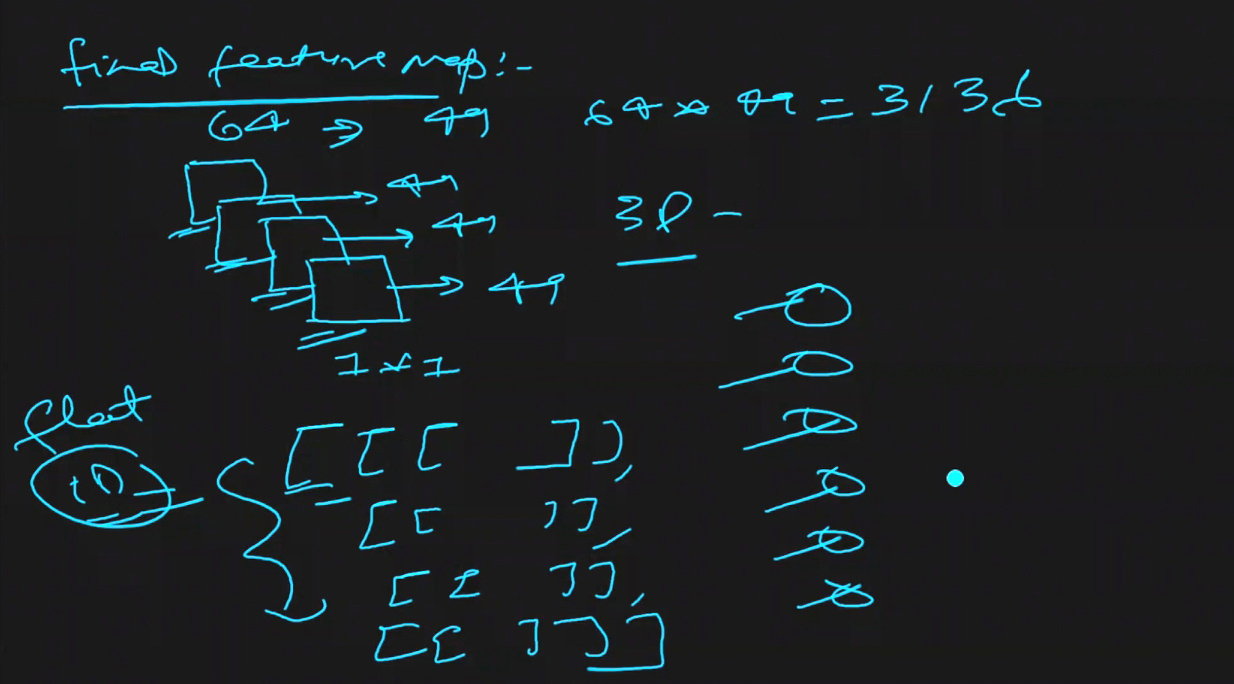 final feature map:-
64 → 49
64 * 49 = 3136
→ 49
→ 49
→ 49
3D -
7 * 7
flat
1D
[[[ ]],
[[ ]],
[[ ]],
[[ ]]]